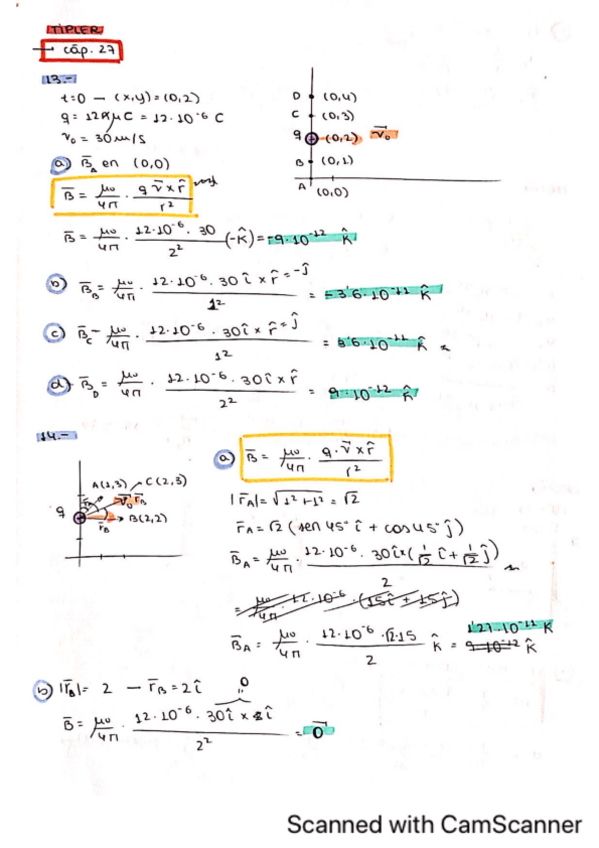 TIPLER
→ cáp. 27
13.-
t=0 — (x,y)=(0,2)
q = 12 μC = 12·10⁻⁶ C
v₀ = 30 m/s
D (0,4)
C (0,3)
q (0,2) v⃗₀
B (0,1)
A (0,0)
a) B̄_A en (0,0)
B̄ = μ₀/4π · q v̄ x r̂ / r²
B̄ = μ₀/4π · 12·10⁻⁶·30 / 2² (-k̂) = -9·10⁻¹² k̂
b) B̄_B = μ₀/4π · 12·10⁻⁶·30 î x r̂ = -ĵ / 1² = -3'6·10⁻¹¹ k̂
c) B̄_C = μ₀/4π · 12·10⁻⁶·30 î x r̂ = ĵ / 1² = 3'6·10⁻¹¹ k̂
d) B̄_D = μ₀/4π · 12·10⁻⁶·30 î x r̂ / 2² = 9·10⁻¹² k̂
14.-
A(1,3) C(2,3)
q v̄₀ r̄_B
r̄_B B(2,2)
a) B̄ = μ₀/4π · q·v̄ x r̂ / r²
|r̄_A| = √1²+1² = √2
r̄_A = √2 (sen 45° î + cos 45° ĵ)
B̄_A = μ₀/4π · 12·10⁻⁶·30 î x (1/√2 î + 1/√2 ĵ) / 2
= μ₀/4π · 12·10⁻⁶ · (15 î + 15 ĵ)
B̄_A = μ₀/4π · 12·10⁻⁶·√2·15 / 2 k̂ = 1'27·10⁻¹¹ k̂
9·10⁻¹² k̂
b) |r̄_B| = 2 — r̄_B = 2 î
0
B̄ = μ₀/4π · 12·10⁻⁶·30 î x î / 2² = 0⃗
Scanned with CamScanner